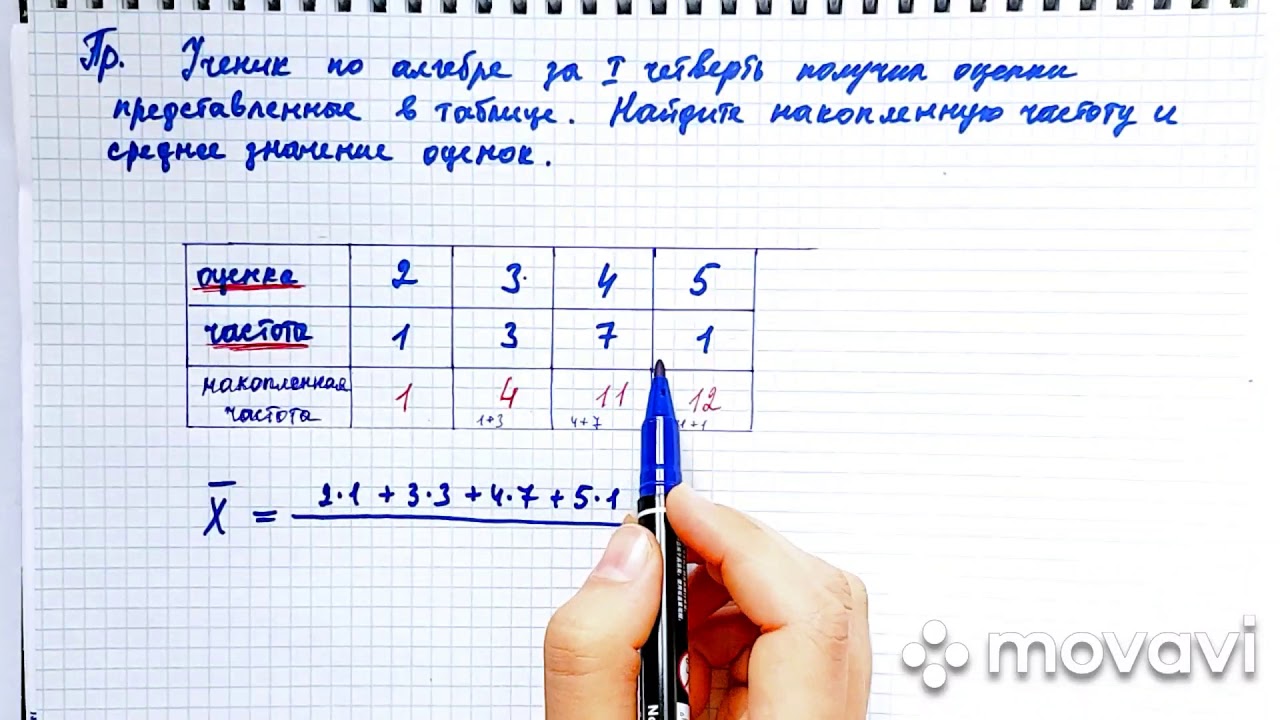 Пр. Ученик по алгебре за I четверть получил оценки
представленные в таблице. Найдите накопленную частоту и
среднее значение оценок.
оценка 2 3 4 5
частота 1 3 7 1
накопленная частота 1 4 11 12
1+3 4+7 11+1
X̄ = 2·1 + 3·3 + 4·7 + 5·1
movavi